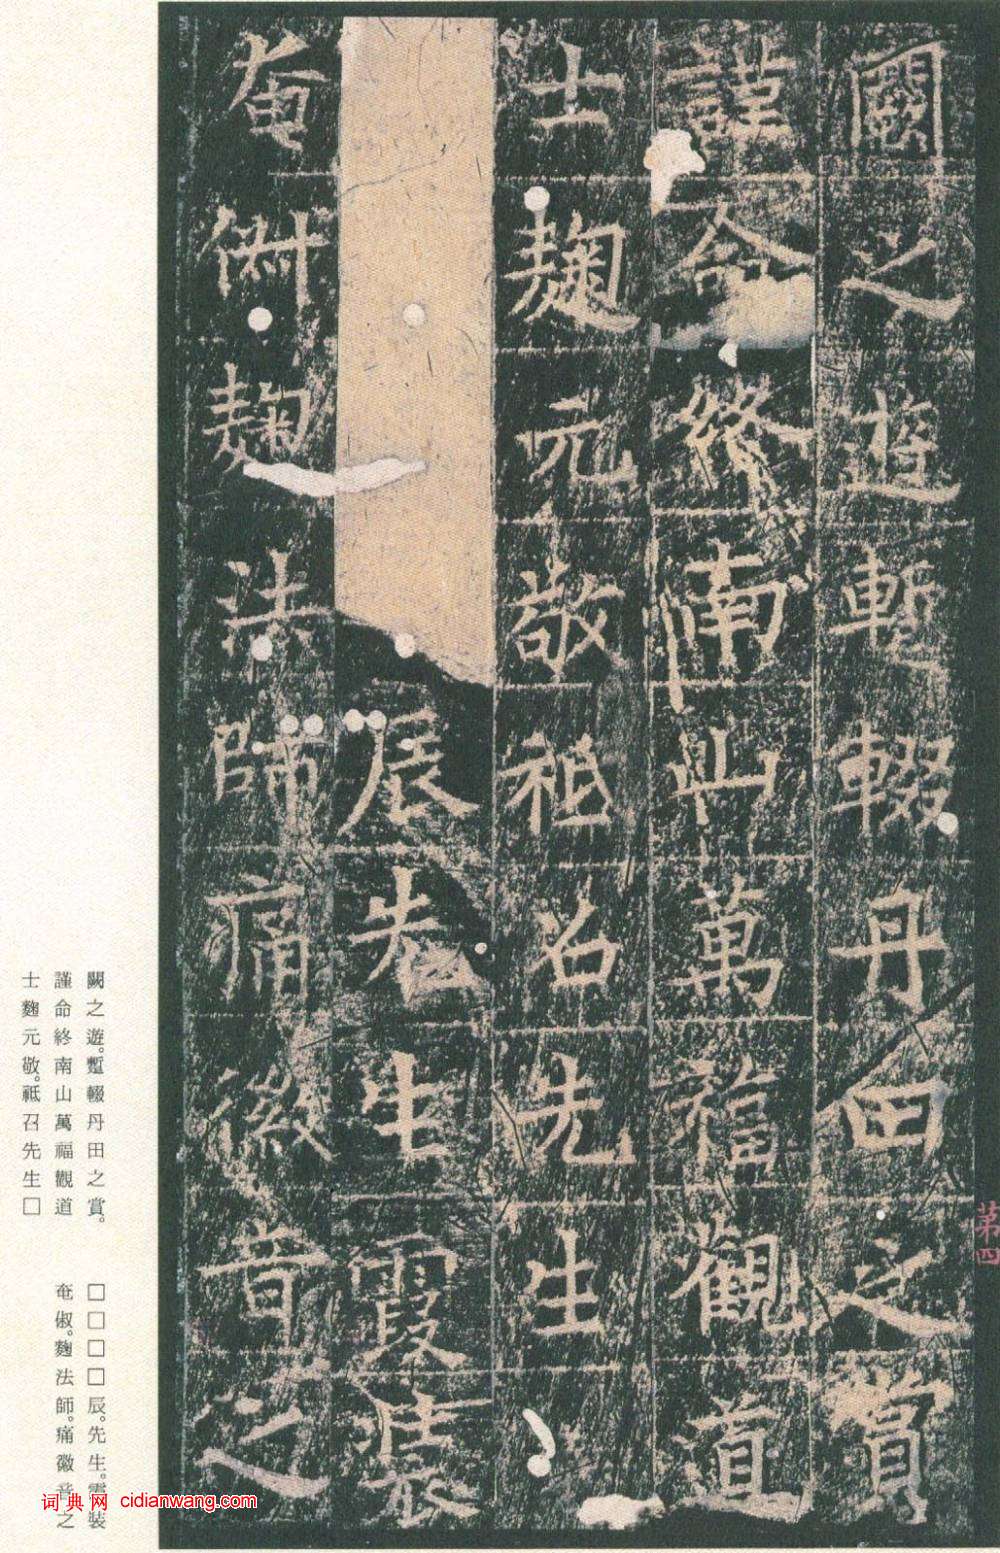 闕之遊蹔輟丹田之賞
謹命終南山萬福觀道
士麹元敬祗召先生
辰先生霞裝
奄俶麹法師痛徽音之
第四
闕之遊。蹔輟丹田之賞。
謹命終南山萬福觀道
士麴元敬。祗召先生□
□□□□辰。先生。霞裝
奄俶。麴法師。痛徽音之
词典网 cidianwang.com